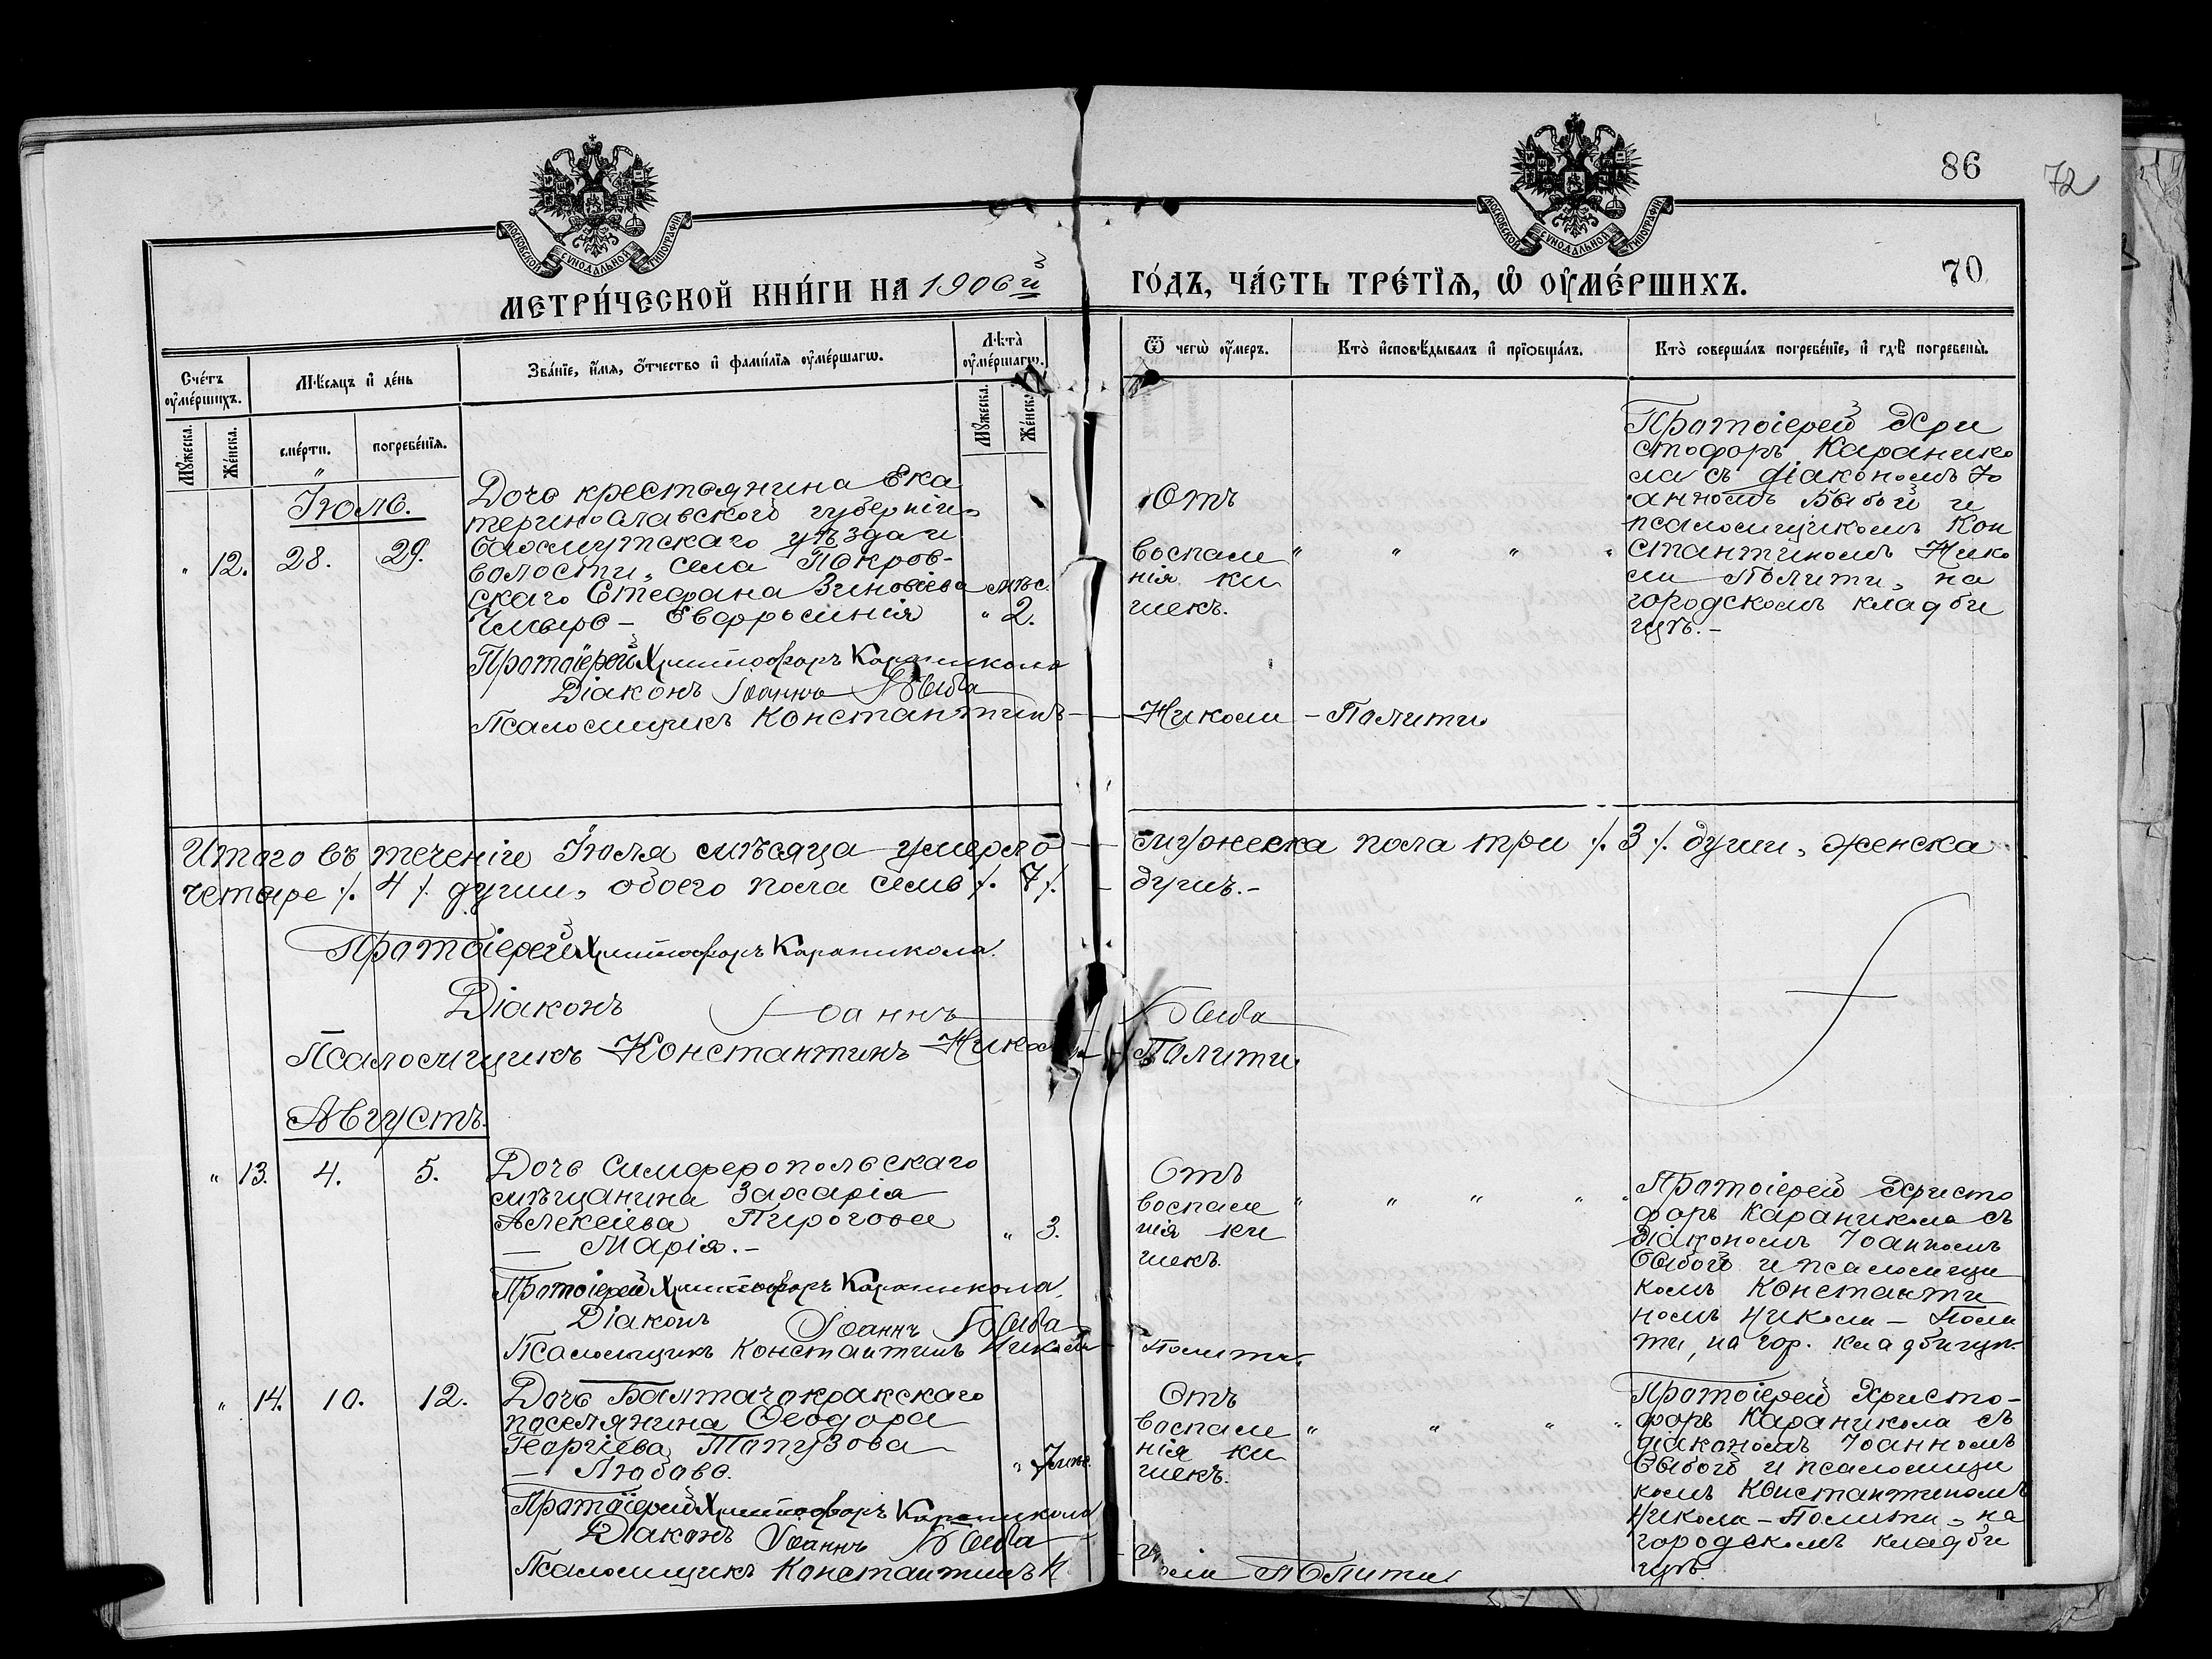 МОСКОВСКОЙ СѴНОДАЛЬНОЙ ТИПОГРАФІИ
МОСКОВСКОЙ СѴНОДАЛЬНОЙ ТИПОГРАФІИ
86
72
МЕТРИ́ЧЕСКОЙ КНИ́ГИ НА 1906й
ГО́ДЪ, ЧА́СТЬ ТРЕ́ТІѦ, Ѡ ОУМЕ́РШИХЪ.
70
Сче́тъ оуме́ршихъ.
Мѣсяцъ и де́нь
Зва́ніе, и́мя, о́тчество и фами́лія оуме́ршагѡ.
Лѣта̀ оуме́ршагѡ.
Ѿ чегѡ̀ оу́меръ.
Кто̀ исповѣ́дывалъ и пріѡбща́лъ.
Кто̀ соверша́лъ погребе́ніе, и гдѣ̀ погребены̀.
Мꙋ́жеска.
Же́нска.
сме́рти.
погребе́нія.
Мꙋ́жеска.
Же́нска.
Іюль.
" 12. 28. 29.
Дочь крестьянина Ека
теринославской губерніи,
Бахмутскаго уѣзда и
волости, села Покров-
скаго Стефана Зиновіева
Чмырь - Евфросинія
мѣс.
" 2.
Отъ
воспале
нія ки
шекъ.
" " " "
Протоіерей Хри
стофоръ Карани­ко
ла съ діакономъ Іо
анномъ Бабой и
псаломщикомъ Кон
стантиномъ Нико
ли Полити, на
городскомъ кладби
щѣ.-
Протоіерей Христофоръ Караникола
Діаконъ Іоаннъ Баба
Псаломщикъ Константинъ - Николи - Полити
Итого въ теченіе Іюля мѣсяца умерло - мужеска пола три ./. 3 ./. души, женска
четыре ./. 4 ./. души, обоего пола семь ./. 7 ./. - душъ.-
Протоіерей Христофоръ Караникола.
Діаконъ Іоаннъ Баба
Псаломщикъ Константинъ Николи - Полити
Августъ.
" 13. 4. 5.
Дочь Симферопольскаго
мѣщанина Захарія
Алексіева Пирогова
- Марія.-
" 3.
Отъ
воспале
нія ки
шекъ.
" " " "
Протоіерей Христо
форъ Караникола съ
діакономъ Іоанномъ
Бабой и псаломщи
комъ Константи
номъ Николи - Поли
ти, на гор. кладбищѣ.
Протоіерей Христофоръ Караникола.
Діаконъ Іоаннъ Баба
Псаломщикъ Константинъ Николи - Полити
" 14. 10. 12.
Дочь Балтачокракскаго
поселянина Ѳеодора
Георгіева Топузова
- Любовь.
" 7 мѣс.
Отъ
воспале
нія ки
шекъ.
" " " "
Протоіерей Христо-
форъ Караникола съ
діакономъ Іоанномъ
Бабой и псаломщи
комъ Константиномъ
Никола - Полити, на
городскомъ кладби
щѣ.
Протоіерей Христофоръ Караникола
Діаконъ Іоаннъ Баба
Псаломщикъ Константинъ Николи Полити